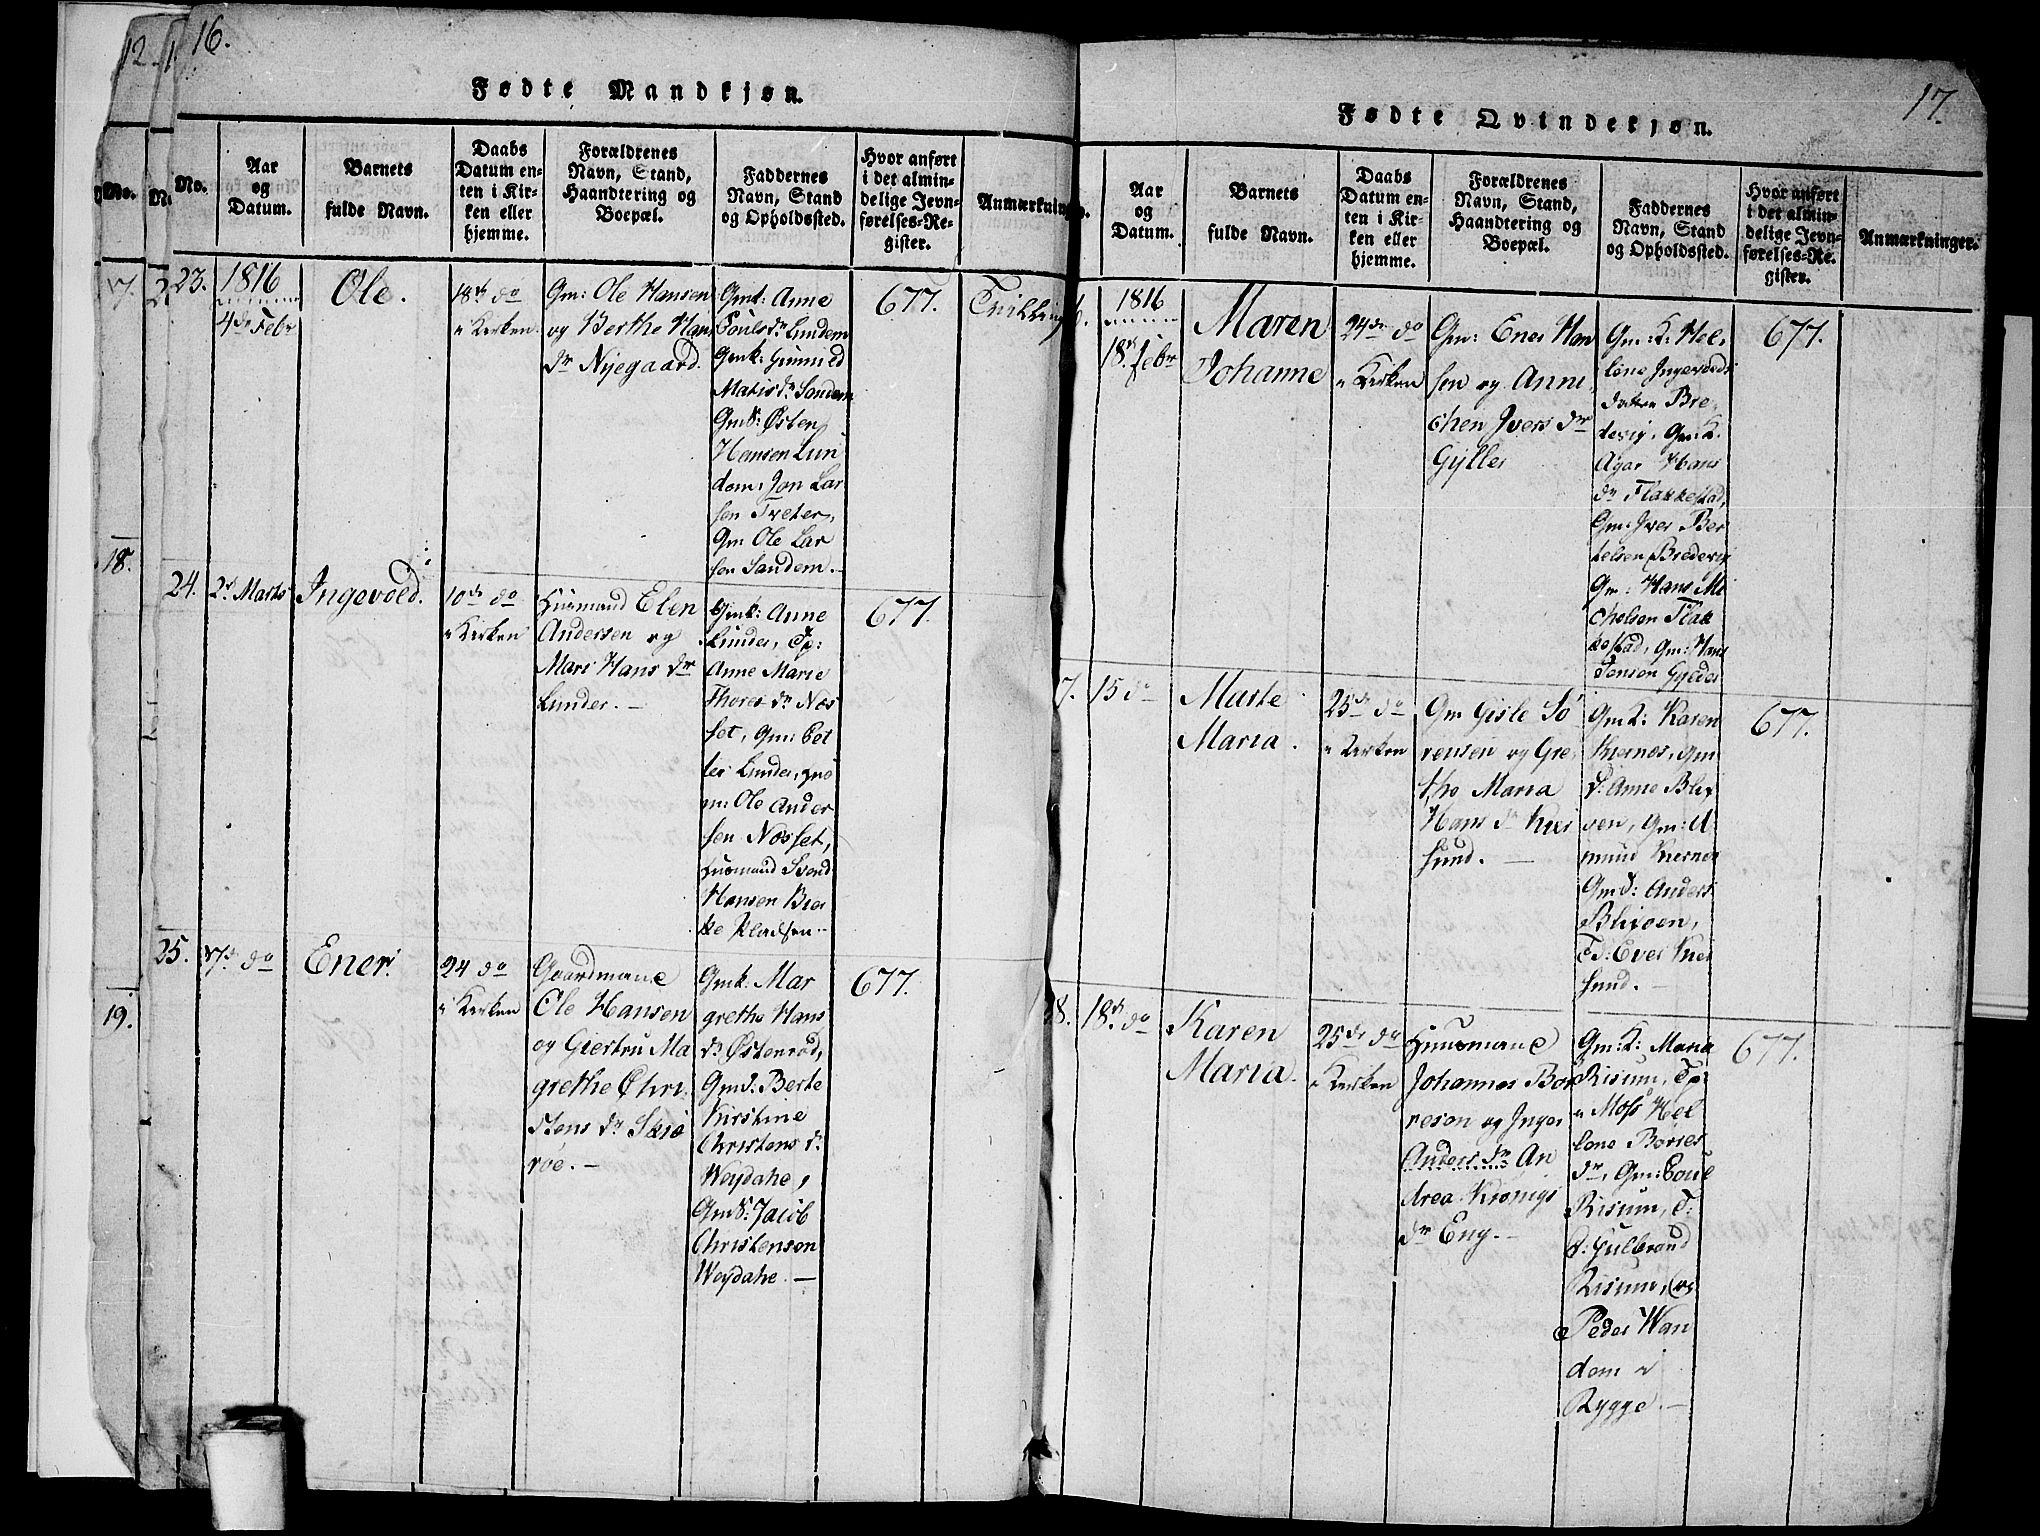 12.
16.
Fødte Mandkjøn.
No.
No.
Aar
og
Datum.
Barnets
fulde Navn.
Daabs
Datum en-
ten i Kir-
ken eller
hjemme.
Forældrenes
Navn, Stand,
Haandtering og
Boepæl.
Faddernes
Navn, Stand
og Opholdssted.
Hvor anført
i det almin-
delige Jevn-
førelses-Re-
gister.
Anmærkning
17.
18.
19.
23.
1816
4de Febr
Ole.
18de do
i Kirken.
Gm: Ole Hansen
og Berthe Hans
dr Nyegaard.
Gmk: Anne
Poulsdr Lundem
Gmk: Gunnild
Matisdr Sandem
GmS: Østen
Hansen Lun
dem, Jon Lar
sen Tveter,
Gm Ole Lar
sen Sandem.
677.
Tvilling
24.
2d Marts
Ingevold.
10de do
i Kirken
Huusmand Elen
Andersen og
Mari Hans dr
Lunder. —
Gmk: Anne
Lunder, Tp:
Anne Marie
Thores dr Næs
set, Gm: Pet
ter Lunder,
Ole Ander
sen Næsset,
Huusmand Svend
Hansen
677.
25.
7d do
Ener.
24 do
i Kirken
Gaardmand
Ole Hansen
og Giertru Ma
grethe Chri
stens dr Skie
røe. —
Gmk: Mar
grethe Hans
dr Østenrød,
Gmd. Berte
Kirstine
Christens dr
Woydahe,
GmS: Jacob
Christensen
Woydahe. —
677.
17.
Fødte Qvindekjøn.
Aar
og
Datum.
Barnets
fulde Navn.
Daabs
Datum en-
ten i Kir-
ken eller
hjemme.
Forældrenes
Navn, Stand,
Haandtering og
Boepæl.
Faddernes
Navn, Stand
og Opholdssted.
Hvor anført
i det almin-
delige Jevn-
førelses-Re-
gister.
Anmærkninger.
1816
18de Febr
Maren
Johanne
24de do
i Kirken
Gm: Ener Han
sen og Anni
chen Ivers dr
Gyller
Gm: K: Hel
lene Ingevolds
datter Bre
devig, Gm: K.
Agar Hans
dr Flakkestad,
Gm: Iver Ber
telsen Bredevig
Gm: Hans Mi
chelsen Flak
kestad, Gm: Hans
Jensen Gylder
677.
7.
15 do
Marte
Maria.
25de do
i Kirken
Gm Gisle Sö
rensen og Gre
the Maria
Hans dr Kier
sund. —
GmK: Karen
Kiernes, Gm
d: Anne Blix
oen, Gm: A
mund Kiernes
Gmd: Anders
Blixoen,
Td: Ever Kier
sund. —
677.
8.
18de do
Karen
Maria.
25de do
i Kirken
Huusmand
Johannes Bor
resen og Inger
Anders dr An
drea Kronigs
dr Eng. —
Gm: K: Maria
Risum, Tp:
i Moss Hel
lene Borres
dr, Gm: Poul
Risum, T:
d: Gulbrand
Risum, og
Peder Wan
dem i
Rygge. —
677.